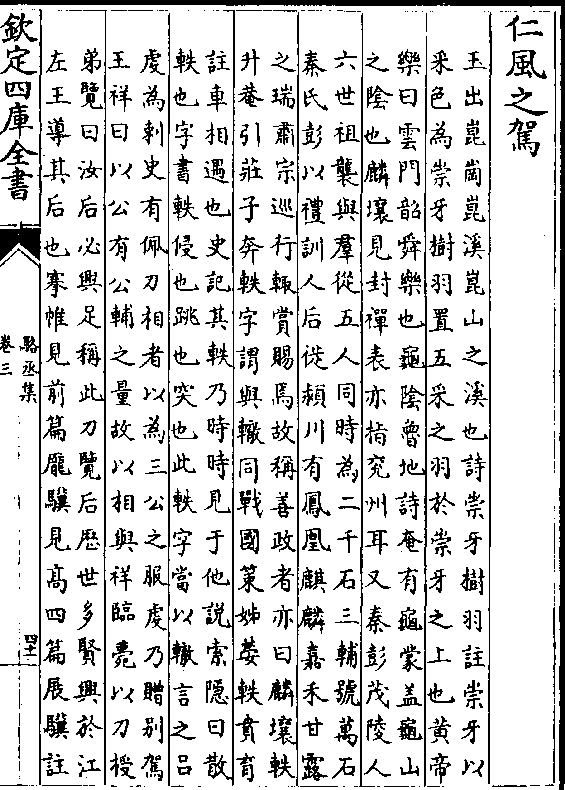 仁風之駕
玉出崑崗崑溪崑山之溪也詩崇牙樹羽註崇牙以
采色為崇牙樹羽置五采之羽於崇牙之上也黄帝
樂曰雲門韶舜樂也龜陰魯地詩奄有龜蒙盖龜山
之陰也麟壤見封禪表亦指兖州耳又秦彭茂陵人
六世祖襲與羣從五人同時為二千石三輔號萬石
秦氏彭以禮訓人后徙潁川有鳳凰麒麟嘉禾甘露
之瑞肅宗巡行輙賞賜焉故稱善政者亦曰麟壤軼
升菴引莊子奔軼字謂與轍同戰國䇿姊嫈軼賁育
註車相過也史記其軼乃時時見于他說索隐曰散
軼也字書軼侵也跳也突也此軼字當以轍言之吕
虔為刺史有佩刀相者以為三公之服虔乃贈别駕
王祥曰以公有公輔之量故以相與祥臨薨以刀授
弟覽曰汝后必興足稱此刀覽后厯世多賢興於江
左王導其后也搴帷見前篇龎驥見髙四篇展驥註
欽定四庫全書
駱丞集
卷三
四十一